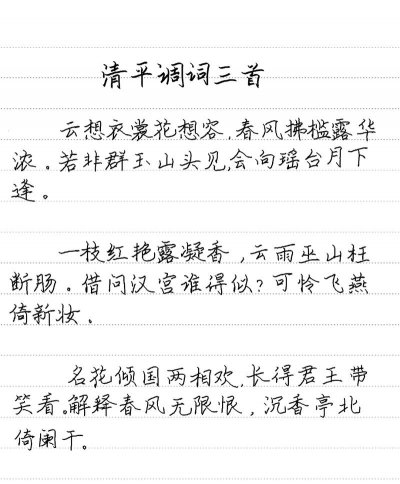 清平调词三首
云想衣裳花想容,春风拂槛露华
浓。若非群玉山头见,会向瑶台月下
逢。
一枝红艳露凝香,云雨巫山枉
断肠。借问汉宫谁得似?可怜飞燕
倚新妆。
名花倾国两相欢,长得君王带
笑看。解释春风无限恨,沉香亭北
倚阑干。